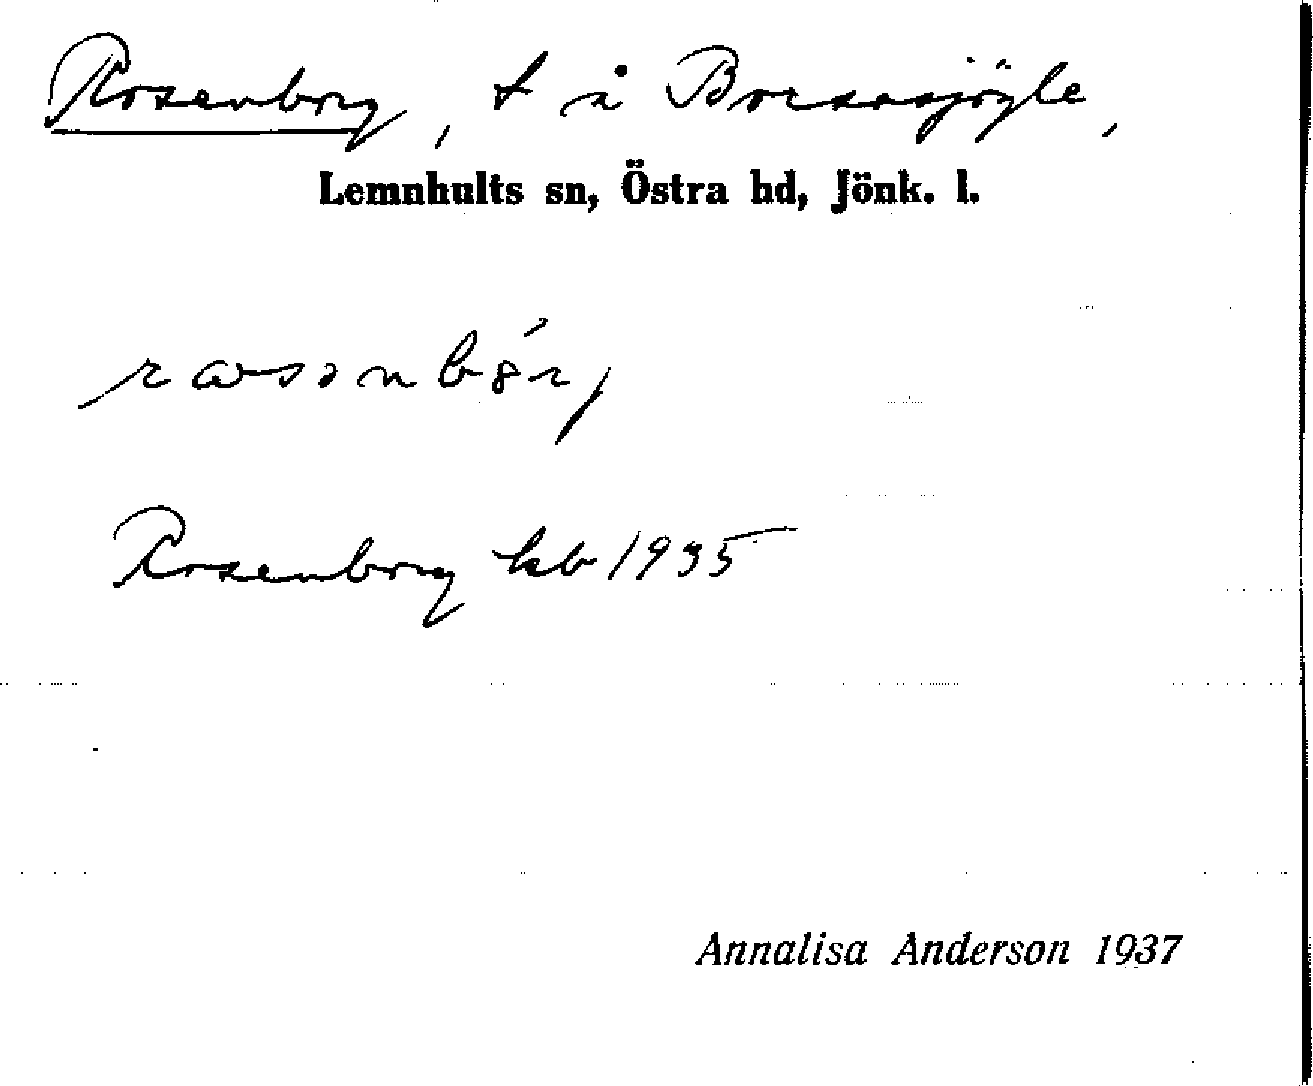 Rosenborg, t å Broaryjöyle,
Lemnhults sn, Östra hd, Jönk. l.
rosenbórj
Rosenborg kb 1935
Annalisa Anderson 1937